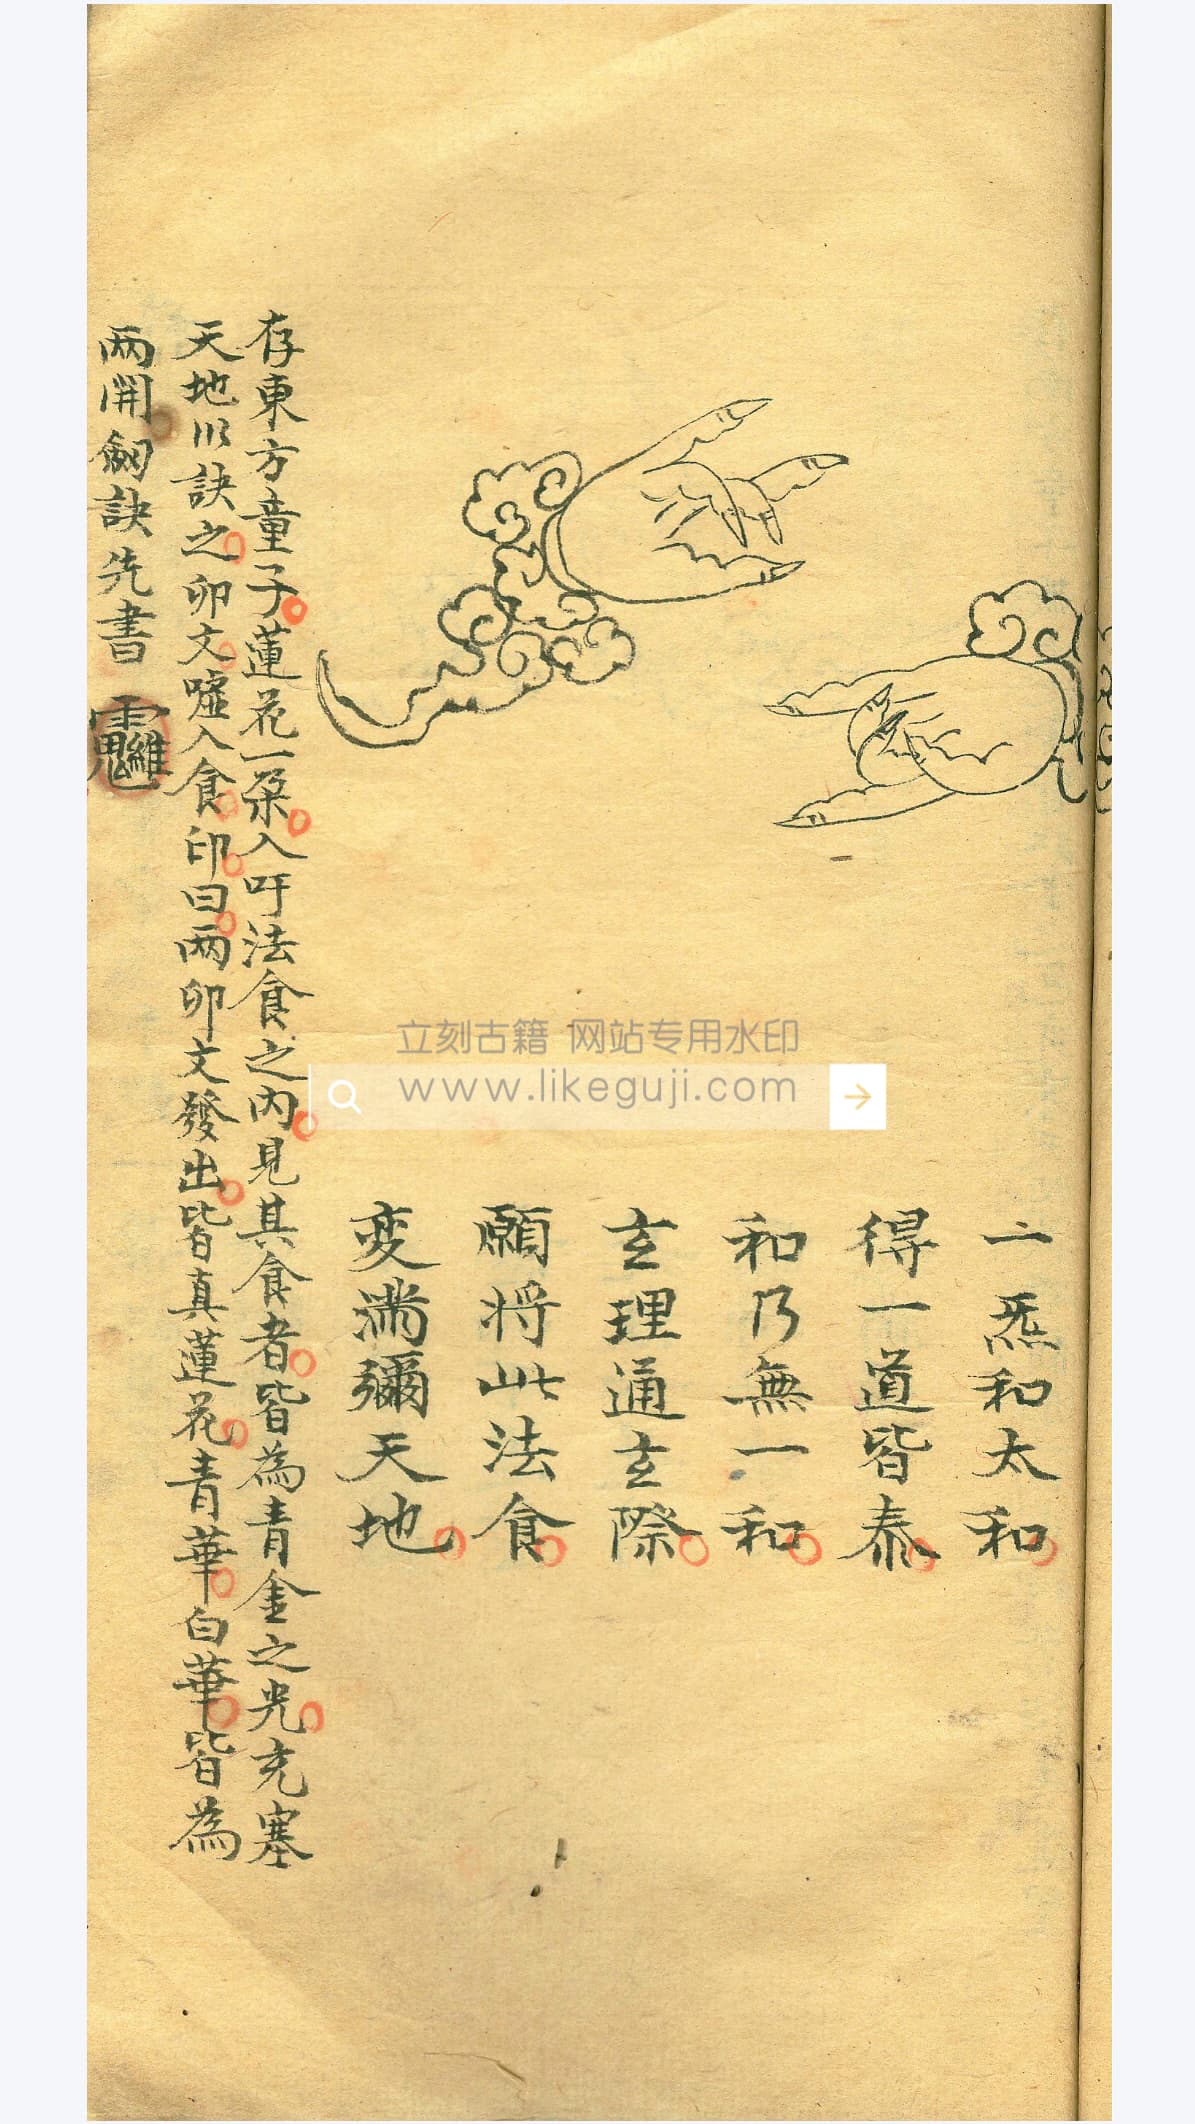 二炁和太和
得一道皆泰
和乃無一和
玄理通玄際
願将此法食
変満彌天地
存東方童子蓮花一朶入吁法食之内見其食者皆為青金之光充塞
天地以訣之卯文噓入食印曰兩卯文發出皆真蓮花青華白華皆為
兩開劒訣先書
立刻古籍 网站专用水印
www.likeguji.com